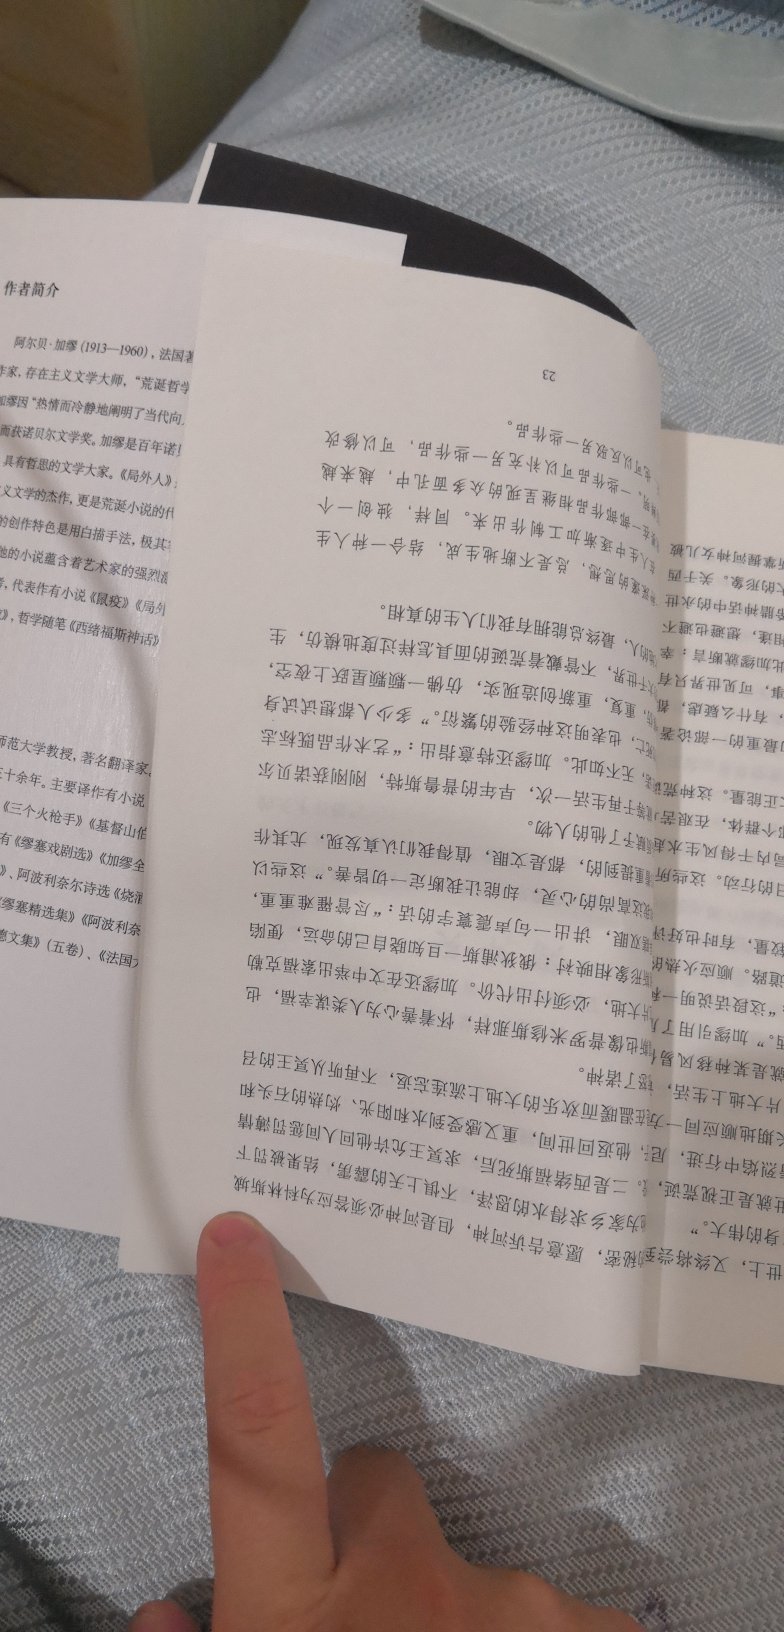 作者简介
阿尔贝·加缪(1913—1960)，法国著
作家，存在主义文学大师，“荒诞哲学
加缪因“热情而冷静地阐明了当代向
而获诺贝尔文学奖。加缪是百年诺
具有哲思的文学大家。《局外人》
义文学的杰作，更是荒诞小说的代
的创作特色是用白描手法，极其
他的小说蕴含着艺术家的强烈
代表作有小说《鼠疫》《局外
，哲学随笔《西绪福斯神话》
师范大学教授，著名翻译家。
三十余年。主要译作有小说
《三个火枪手》《基督山伯
有《缪塞戏剧选》《加缪全
》、阿波利奈尔诗选《烧酒
《缪塞精选集》《阿波利奈
德文集》(五卷)、《法国
世上，又终将尝到
身的伟大。”
世就是正视荒诞，
烈焰中行进，
长期地顺应同一方
片大地上生活，
就是某种移风易
。”加缪引用了
：“这段话说明一种
道路。顺应火热的
较量，有时也好评
目的行动。这些所
局内干得风生水
那个群体，在艰苦
正能量。这种荒
最重的一部论著
，有什么疑虑，
事，可见世界只有
此加缪就断言：幸
相逢，想避也避不
希腊神话中的永世
大的形象。关于西
掌握河神女儿被
秘密，愿意告诉河神，但是河神必须答应为科林斯城
为家乡求得水的恩泽，不惧上天的霹雳，结果被罚下
。二是西绪福斯死后，求冥王允许他回人间惩罚薄情
他返回世间，重又感受到水和阳光、灼热的石头和
在温暖而欢乐的大地上流连忘返，不再听从冥王的召
怒了诸神。
斯也像普罗米修斯那样，怀着善心为人类谋幸福，也
片大地，必须付出代价。加缪还在文中举出索福克勒
斯形象相映衬：俄狄浦斯一旦知晓自己的命运，便陷
双眼，讲出一句声震寰宇的话：“尽管罹难重重，
我这高尚的心灵，却能让我断定一切皆善。”这些以
着重提到的，都是文眼，值得我们认真发现，尤其作
赋予了他的人物。
等于再生活一次，早年的普鲁斯特，刚刚获诺贝尔
，无不如此。加缪还特意指出：“艺术作品既标志
死亡，也表明这种经验的繁衍。”多少人都想试试身
重复，重新创造现实，仿佛一颗颗星跃上夜空，
大千世界，不管戴着荒诞的面具怎样过度地模仿，生
的人，最终总能拥有我们人生的真相。
种深邃的思想，总是不断地生成，结合一种人生
在人生中逐渐加工制作出来。同样，独创一个
在一部部作品相继呈现的众多面孔中，越来越
。一些作品可以补充另一些作品，可以修改
也可以反驳另一些作品。
23